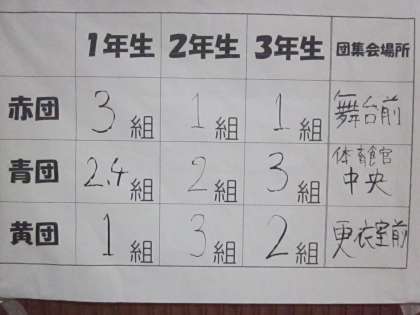 1年生 2年生 3年生 団集会場所
赤団 3組 1組 1組 舞台前
青団 2.4組 2組 3組 体育館中央
黄団 1組 3組 2組 更衣室前